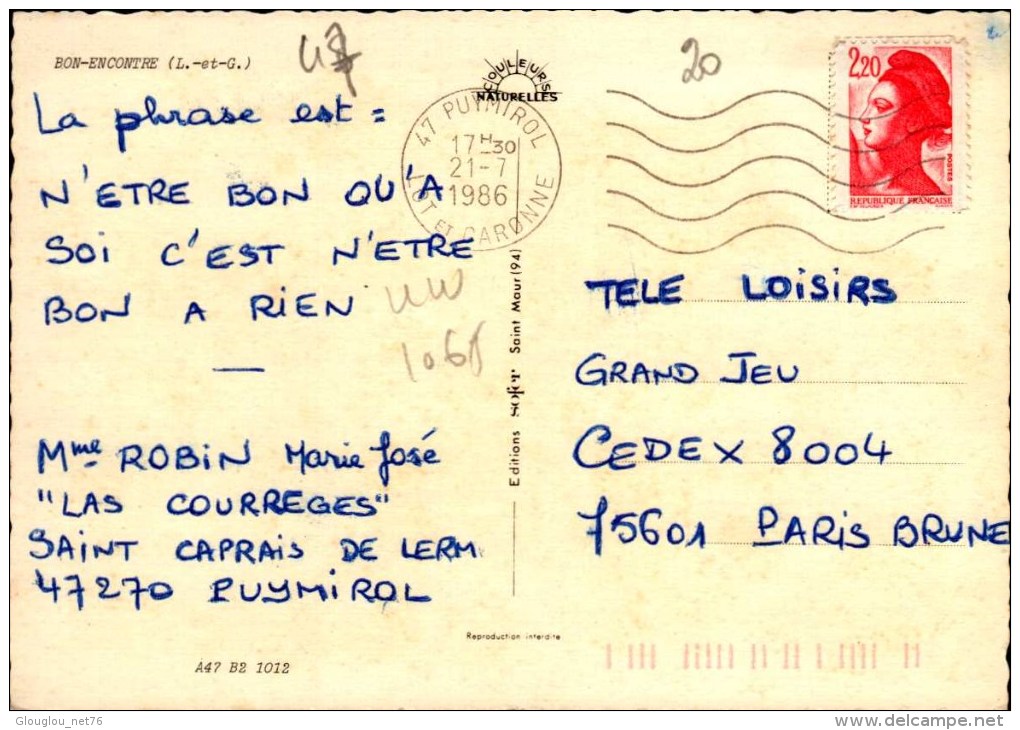 BON-ENCONTRE (L.-et-G.)
47
20
COULEURS
NATURELLES
47 PUYMIROL
17H30
21-7
1986
LOT ET GARONNE
2,20
POSTES
REPUBLIQUE FRANÇAISE
La phrase est =
N'ETRE BON QU'A
SOI C'EST N'ETRE
BON A RIEN
—
Mme ROBIN Marie José
"LAS COURREGES"
SAINT CAPRAIS DE LERM
47270 PUYMIROL
Editions sofer Saint Maur (94)
TELE LOISIRS
GRAND JEU
CEDEX 8004
75601 PARIS BRUNE
Reproduction interdite
A47 B2 1012
Glouglou_net76
www.delcampe.net